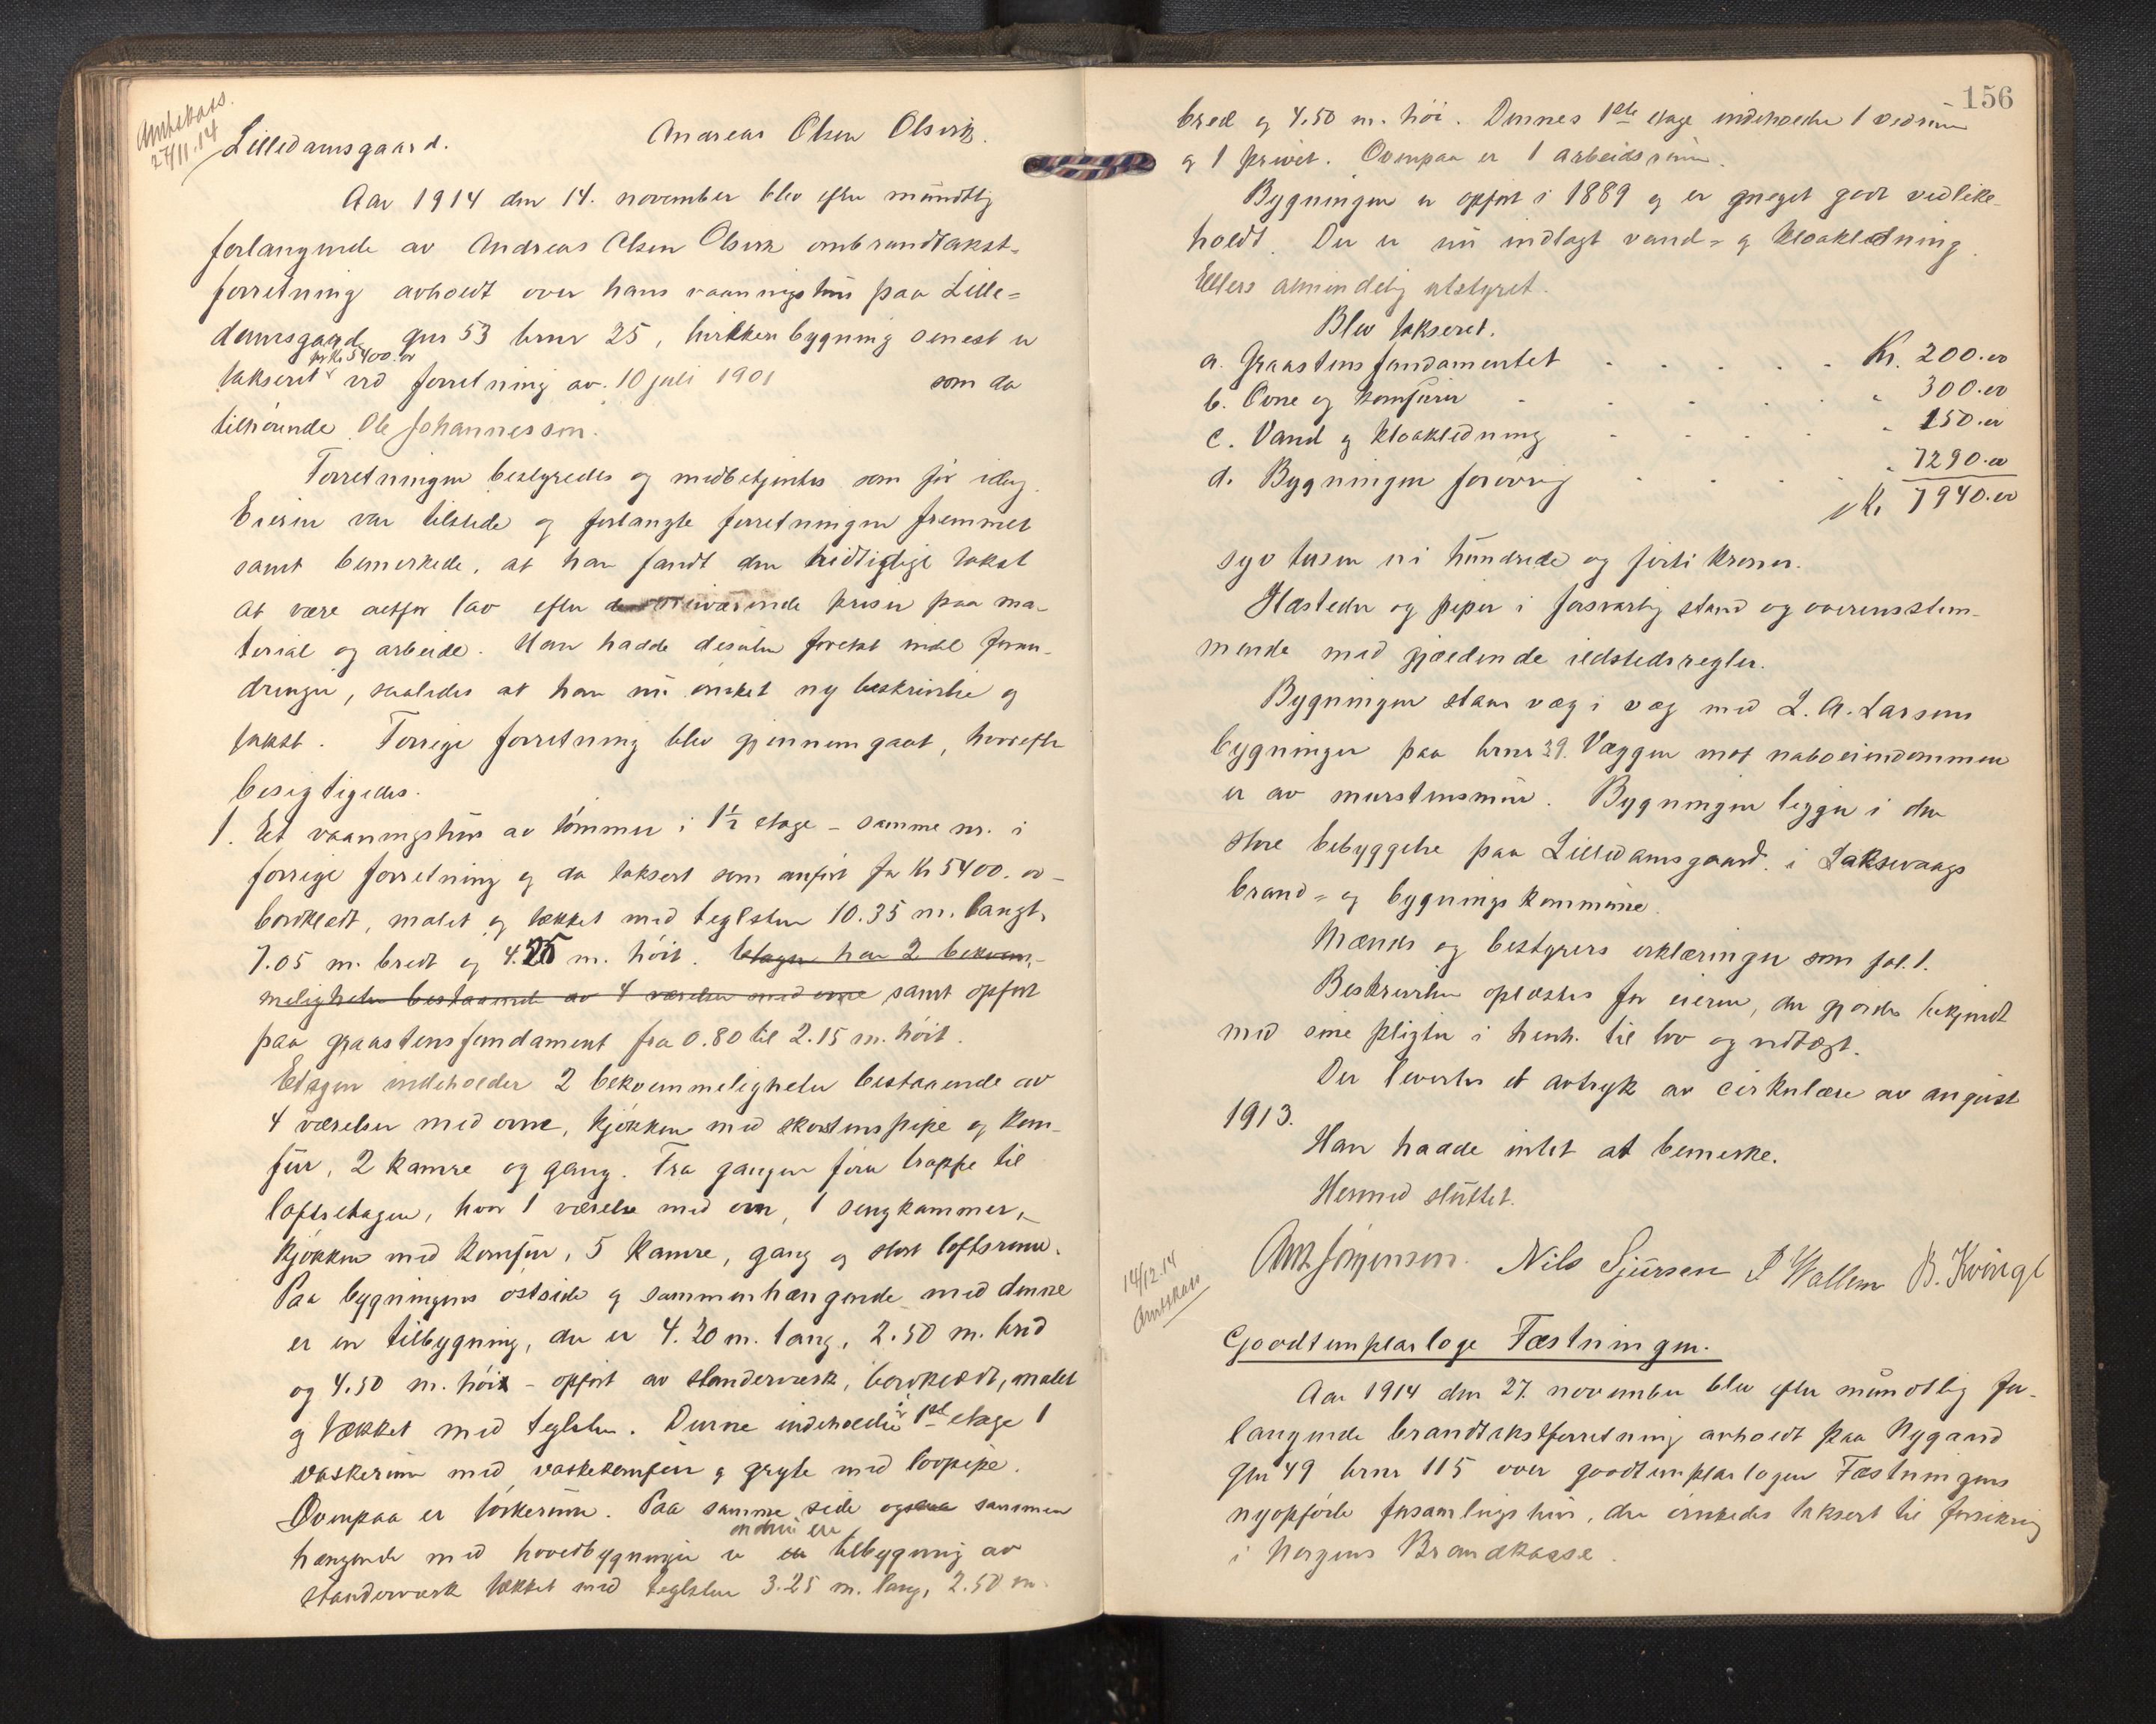 Amtskass.
27/11.14
Lilledamsgaard. Andreas Olsen Olsvik.
Aar 1914 den 14. november blev efter mundtlig
forlangende av Andreas Olsen Olsvik ombrandtakst-
forretning avholdt over hans vaaningshus paa Lille-
damsgaard gnr 53 brnr 25, hvilken bygning senest er
for Kr 5400.00
taksert ved forretning av 10 juli 1901 som da
tilhørende Ole Johannesson.
Forretningen bestyredes og medbetjentes som før idag.
Eieren var tilstede og forlangte forretningen fremmet
samt bemerkede, at han fandt den hidtidige takst
at være altfor lav efter de nuværende priser paa ma-
terial og arbeide. Han hadde desuten foretat indl foran-
dringer, saaledes at han nu ønsket ny beskrivelse og
takst. Forrige forretning blev gjennemgaat, hvorefter
besigtigedes.
1. Et vaaningshus av tømmer i 1½ etage - samme nr. i
forrige forretning og da taksert som anført for Kr 5400.00 -
bordklædt, malet og tækket med teglsten 10.35 m. langt,
7.05 m. bredt og 4.25 m. høit. Etagen har 2 bekvem-
meligheter bestaaende av 4 værelser med ovne samt opført
paa graastensfundament fra 0.80 til 2.15 m. høit.
Etagen indeholder 2 bekvemmeligheter bestaaende av
4 værelser med ovne, kjøkken med skorstenspipe og kom-
fur, 2 kamre og gang. Fra gangen fører trappe til
loftsetagen, hvor 1 værelse med ovn, 1 sengkammer,
kjøkken med komfur, 5 kamre, gang og stort loftsrum.
Paa bygningens østside og sammenhængende med denne
er en tilbygning, der er 4.20 m. lang, 2.50 m. bred
og 4.50 m. høi - opført av standerverk, bordklædt, malet
og tækket med teglsten. Denne indeholder i 1ste etage 1
vaskerum med vaskekomfur og gryte med lovpipe.
Ovenpaa er tørkerum. Paa samme side og sammen
endnu en
hængende med hovedbygningen er en tilbygning av
standerværk tækket med teglsten 3.25 m. lang, 2.50 m.
156
bred og 4.50 m. høi. Dennes 1ste etage indeholder 1 vedrum
og 1 privet. Ovenpaa er 1 arbeidsrum.
Bygningen er opført i 1889 og er meget godt vedlike-
holdt. Der er nu indlagt vand- og kloakledning.
Ellers almindelig utstyret.
Blev taksert.
a. Graastensfundamentet . . . . . Kr. 200.00
b. Ovne og komfurer . . . . . " 300.00
c. Vand og kloakledning . . . . " 150.00
d. Bygningen forøvrig . . . . " 7290.00
Kr. 7940.00
syv tusen ni hundrede og førti kroner.
Ildsteder og piper i forsvarlig stand og overensstem-
mende med gjældende ildstedsregler.
Bygningen staar væg i væg med L. A. Larsens
bygninger paa brnr 39. Væggen mot naboeiendommen
er av murstensmur. Bygningen ligger i den
store bebyggelse paa Lilledamsgaard i Laksevaags
brand- og bygningskommune.
Mænds og bestyrers erklæringer som fol. 1.
Beskrivelsen oplæstes for eieren, der gjordes bekjendt
med sine pligter i henh. til lov og vedtægt.
Der levertes et avtryk av cirkulære av august
1913.
Han hadde intet at bemerke.
Hermed sluttet.
Ant Jørgensen. Nils Sjursen P Wallem B. Kvinge
14/12.14
Amtskass
Goodtemplarloge Fæstningen.
Aar 1914 den 27. november blev efter mundtlig for-
langende brandtakstforretning avholdt paa Nygaard
gnr 49 brnr 115 over goodtemplarlogen Fæstningens
nyopførte forsamlingshus, der ønskedes taksert til forsikring
i Norges Brandkasse.